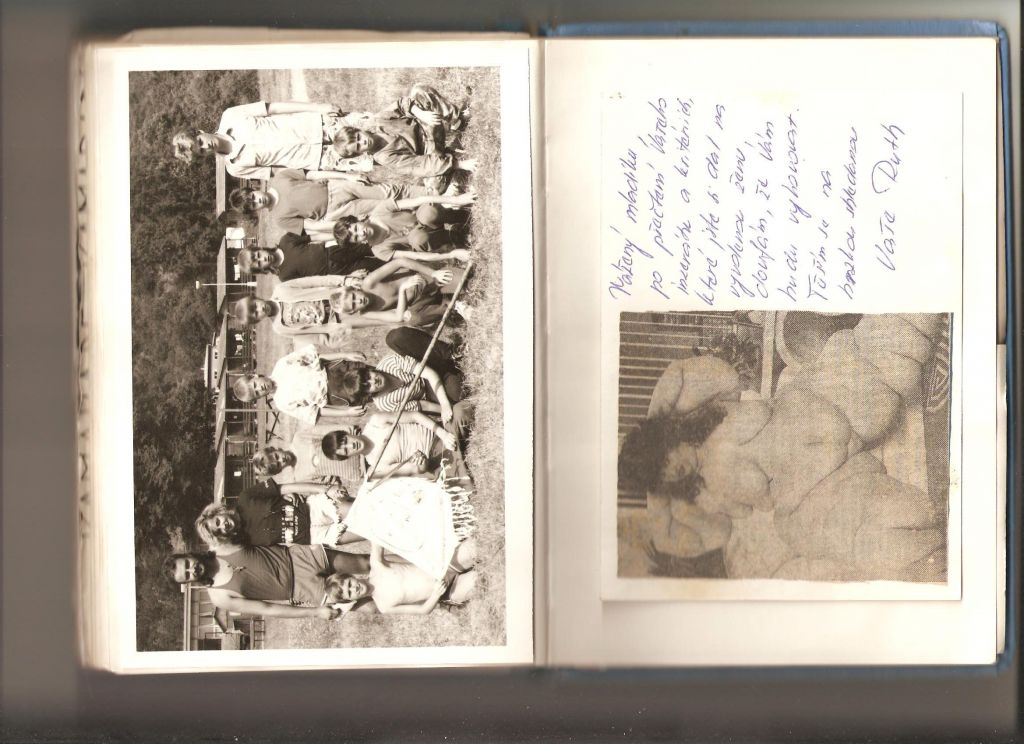 Vážený mladíku
po přečtení Vašeho
inzerátu a kritériích,
které jste si dal na
vyvolenou ženu
doufám, že Vám
budu vyhovovat.
Těším se na
brzkou shledanou
Vaše Ruth